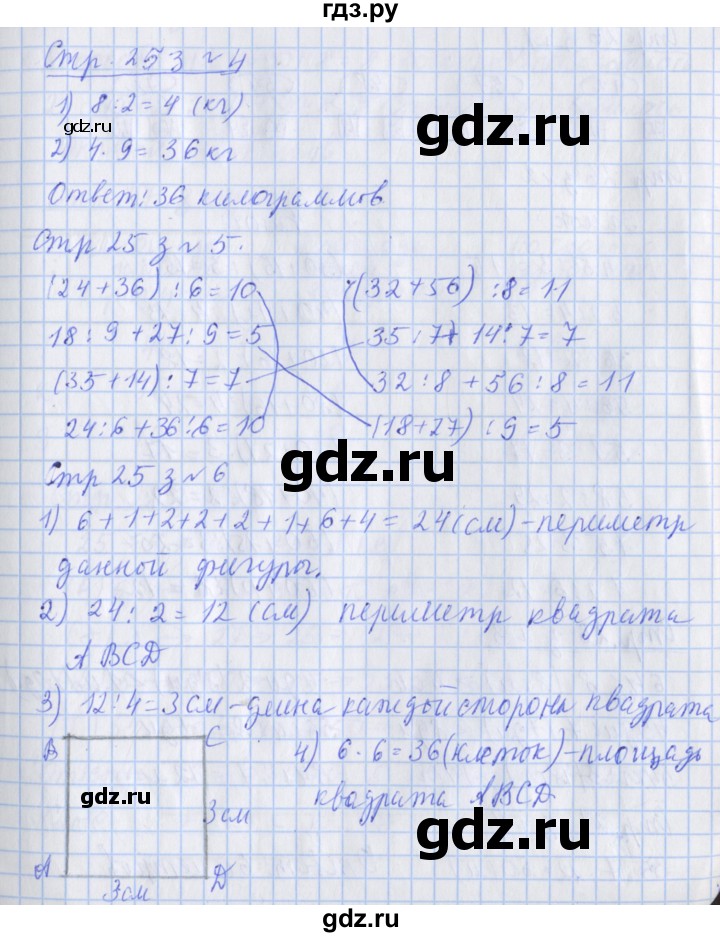 гдз.ру
Стр. 25 з № 4
1) 8:2=4 (кг)
gdz.ru
2) 4·9=36 кг
gdz.ru
Ответ: 36 килограммов
Стр 25 з № 5.
(24+36) :6=10 (32+56) :8=11
18:9+27:9=5 35:7+14:7=7
(35+14):7=7 32:8+56:8=11
24:6+36:6=10 (18+27) :9=5
gdz.ru
Стр 25 з № 6
1) 6+1+2+2+2+1+6+4=24(см)-периметр
данной фигуры.
2) 24:2=12 (см) периметр квадрата
ABCD
gdz.ru
3) 12:4=3 см-длина каждой стороны квадрата
B C 4) 6·6=36(клеток)-площадь
gdz.ru
3 см квадрата ABCD
gdz.ru
A D
3 см
gdz.ru